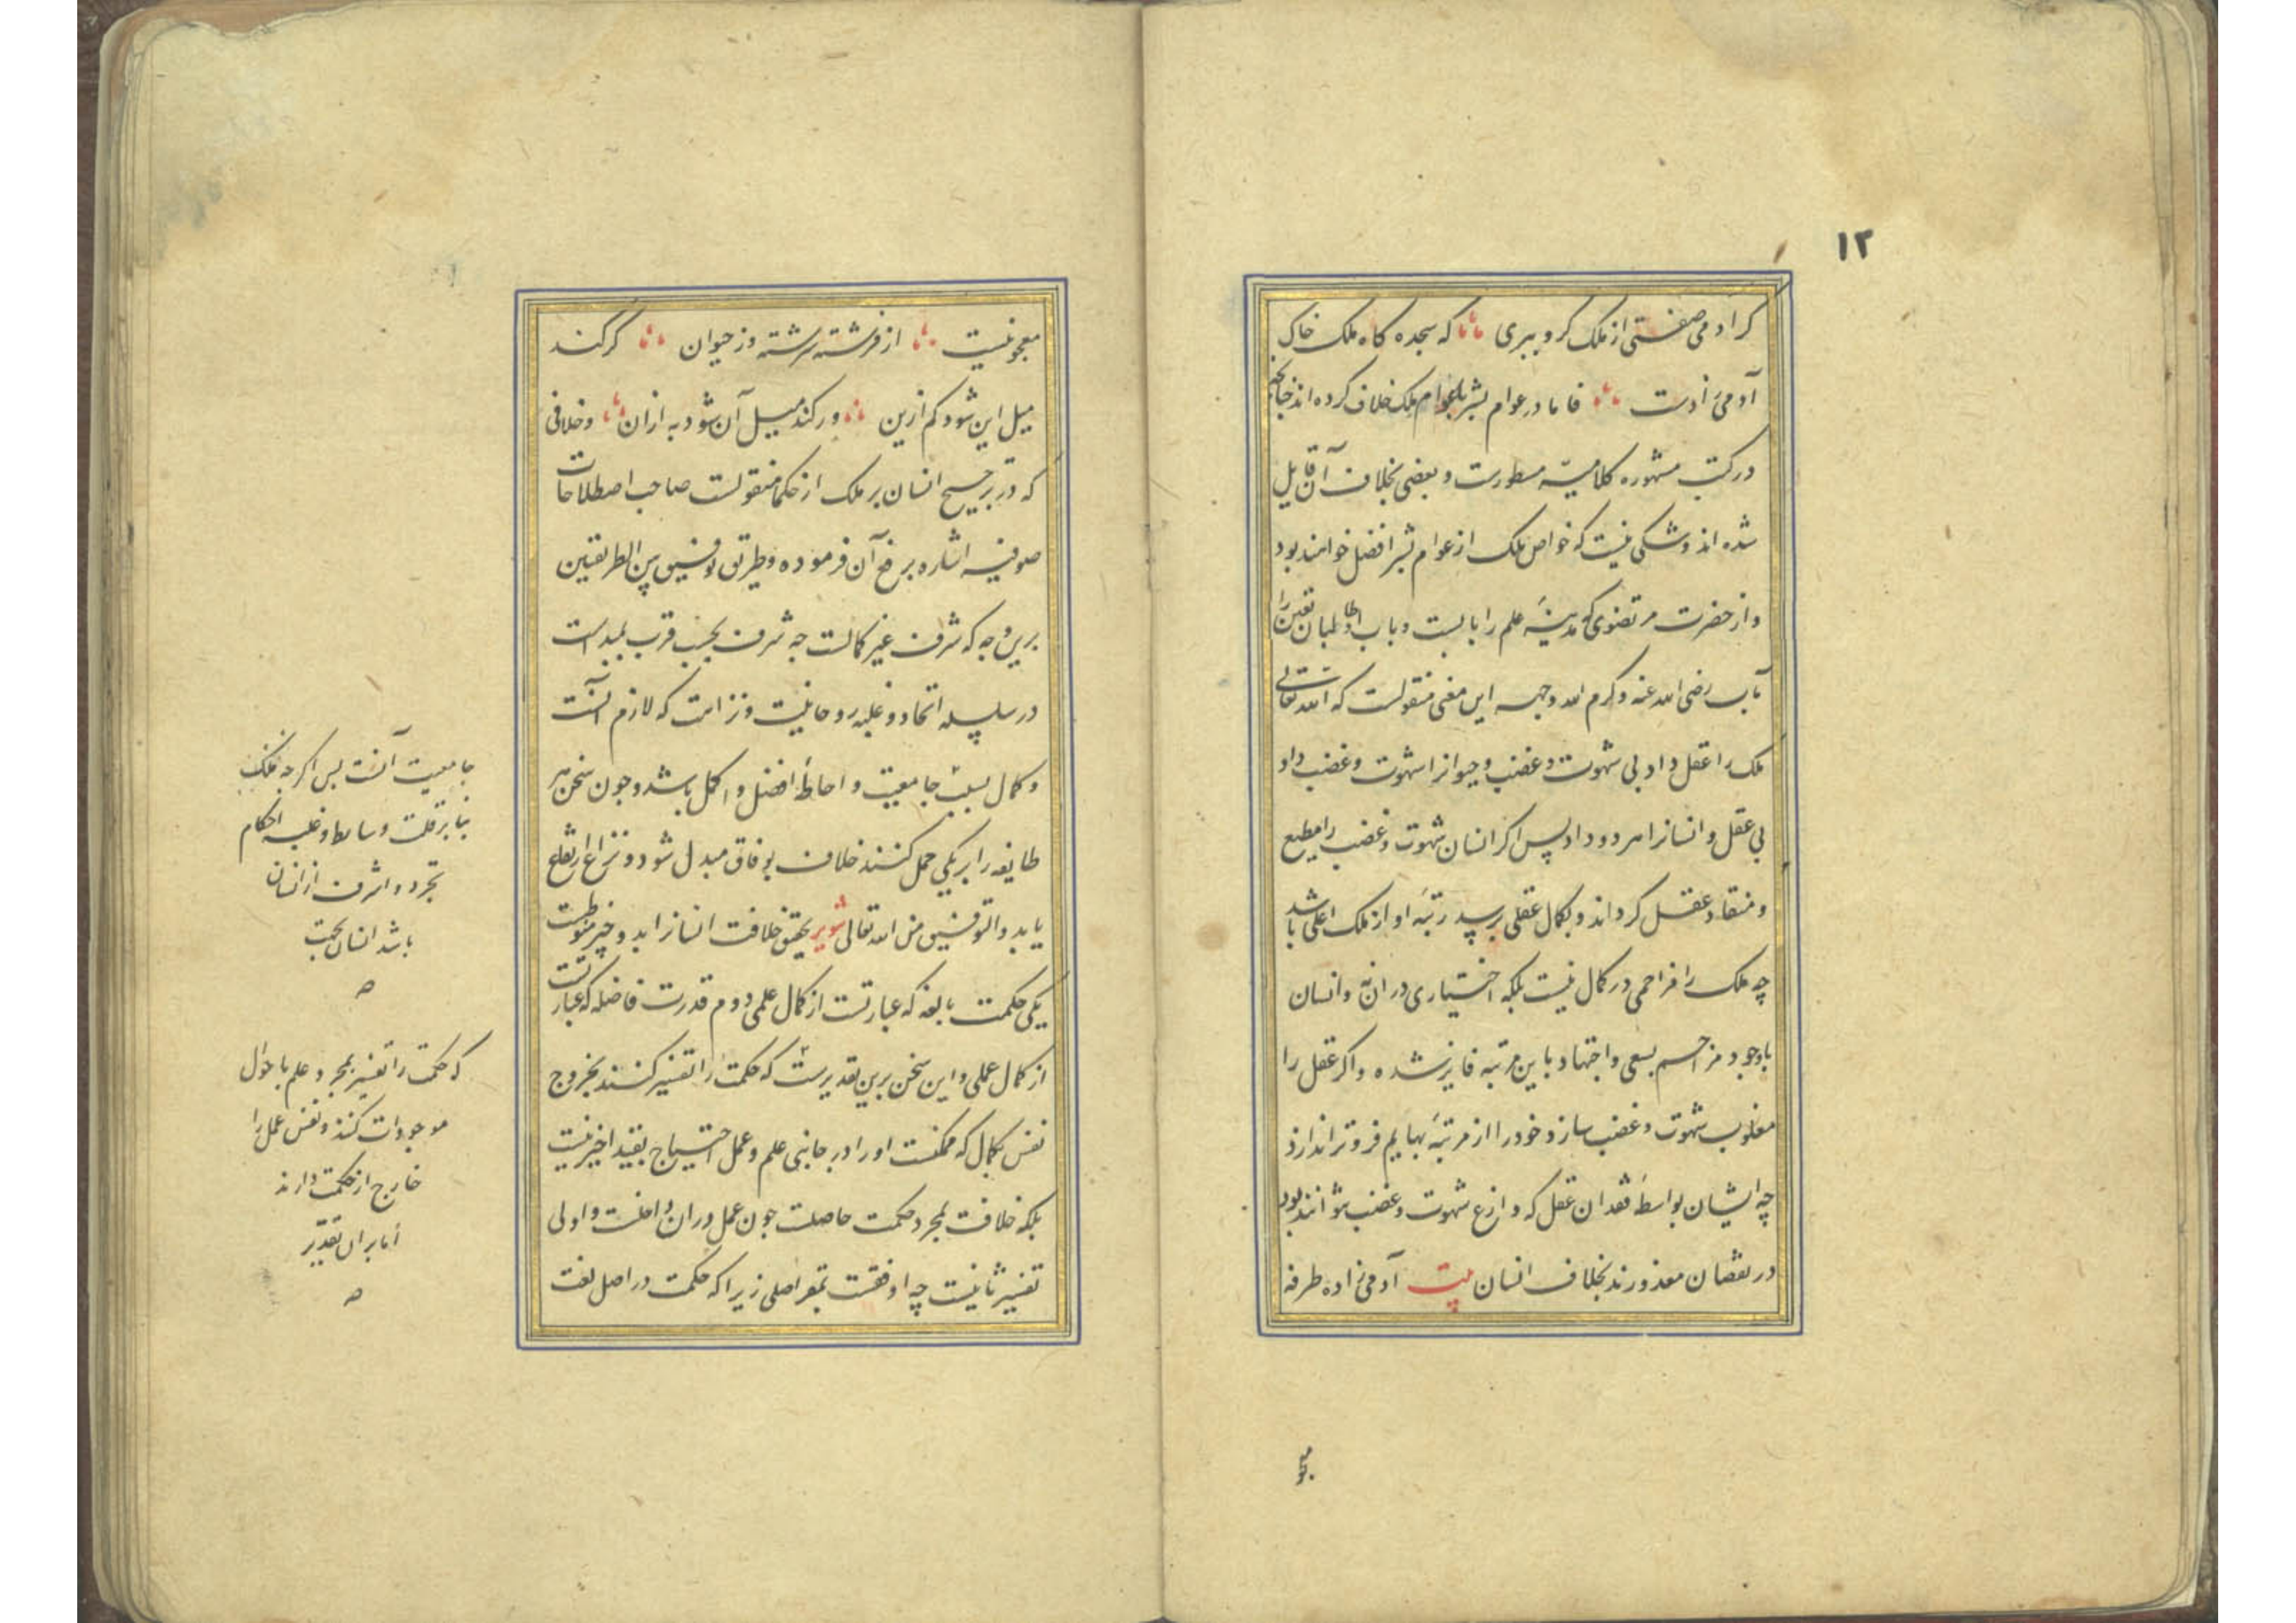 ١٢
کر آدمی صفتی از ملک کرو ببری که سجده کاه ملک خاک
آدمی زادست فاما در عوام بشر با عوام ملک خلاف کرده اند چنانچه
در کتب مشهوره کلامیه مسطورست و بعضی بخلاف آن قایل
شده اند و شکی نیست که خواص ملک از عوام بشر افضل خواهند بود
و از حضرت مرتضوی که مدینهٔ علم را بابست و باب او طالبان یقین را
مآب رضی الله عنه و کرم الله وجهه این معنی منقولست که الله تعالی
ملک را عقل داد بی شهوت و غضب و حیوانرا شهوت و غضب داد
بی عقل و انسانرا هر دو داد پس اکر انسان شهوت و غضب را مطیع
و منقاد عقل کرداند و بکمال عقلی برسد رتبهٔ او از ملک اعلی باشد
چه ملک را مزاحمی در کمال نیست بلکه اختیاری در ان نه و انسان
باوجود مزاحم بسعی و اجتهاد باین مرتبه فایز شده و اکر عقل را
مغلوب شهوت و غضب سازد خود را از مرتبهٔ بهایم فروتر اندازد
چه ایشان بواسطهٔ فقدان عقل که وازع شهوت و غضب تواند بود
در نقصان معذورند بخلاف انسان بیت آدمی زاده طرفه
معجونیست
معجونیست از فرشته سرشته وز حیوان کر کند
میل این شود کم ازین ور کند میل آن شود به ازان و خلافی
که در ترجیح انسان بر ملک از حکما منقولست صاحب اصطلاحات
صوفیه اشاره برفع آن فرموده و طریق توفیق بین الطریقین
برین وجه که شرف غیر کمالست چه شرف بحسب قرب بمبدا است
در سلسله اتحاد و غلبه روحانیت و نزاهت که لازم آنست
و کمال بسبب جامعیت و احاطهٔ افضل و اکمل باشد و چون سخن هر
طایفه را بر یکی حمل کنند خلاف بوفاق مبدل شود و نزاع ارتفاع
یابد والتوفیق من الله تعالی تنویر تحقیق خلافت انسانرا بدو چیز منوطست
یکی حکمت بالغه که عبارتست از کمال علمی دوم قدرت فاضله که عبارتست
از کمال عملی و این سخن برین تقدیرست که حکمت را تفسیر کنند بخروج
نفس بکمال که ممکنست او را در جانبی علم و عمل احتیاج بقید اخیر نیست
بلکه خلافت بمجرد حکمت حاصلست چون عمل در ان داخلست و اولی
تفسیر ثانیست چه اوفقست بمعر اصلی زیرا که حکمت در اصل لغت
جامعیت آنست پس اکر چه فلک
بنابر قلت وسایط و غلبه احکام
تجرد و اشرف از انسان
باشد انسان بحسب
که حکمت را تفسیر بمجرد علم باحوال
موجودات کنند و نفس عمل را
خارج از حکمت دارند
اما بران تقدیر